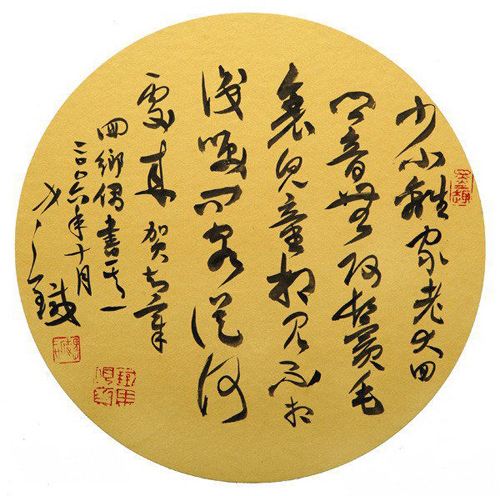 少小離家老大回
鄉音無改鬢毛
衰兒童相見不相
識笑問客從何
處來 賀知章
回鄉偶書其一
二〇〇六年十月